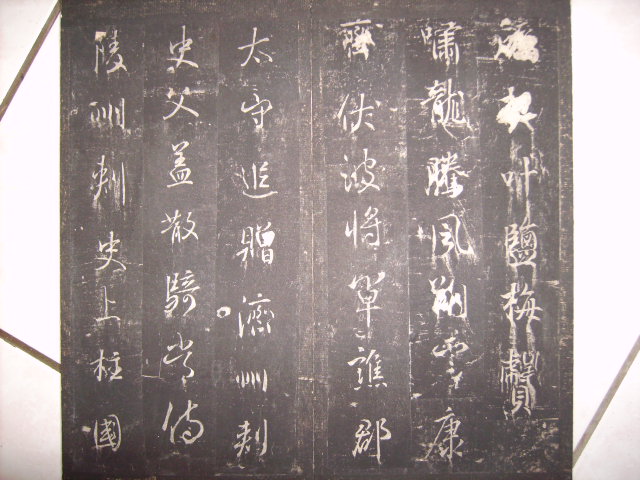 契叶鹽梅贙
嘯龍騰風翔雲康
齊伏波将軍譙郡
太守追贈濟州刺
史父蓋散騎常侍
陵州刺史上柱國